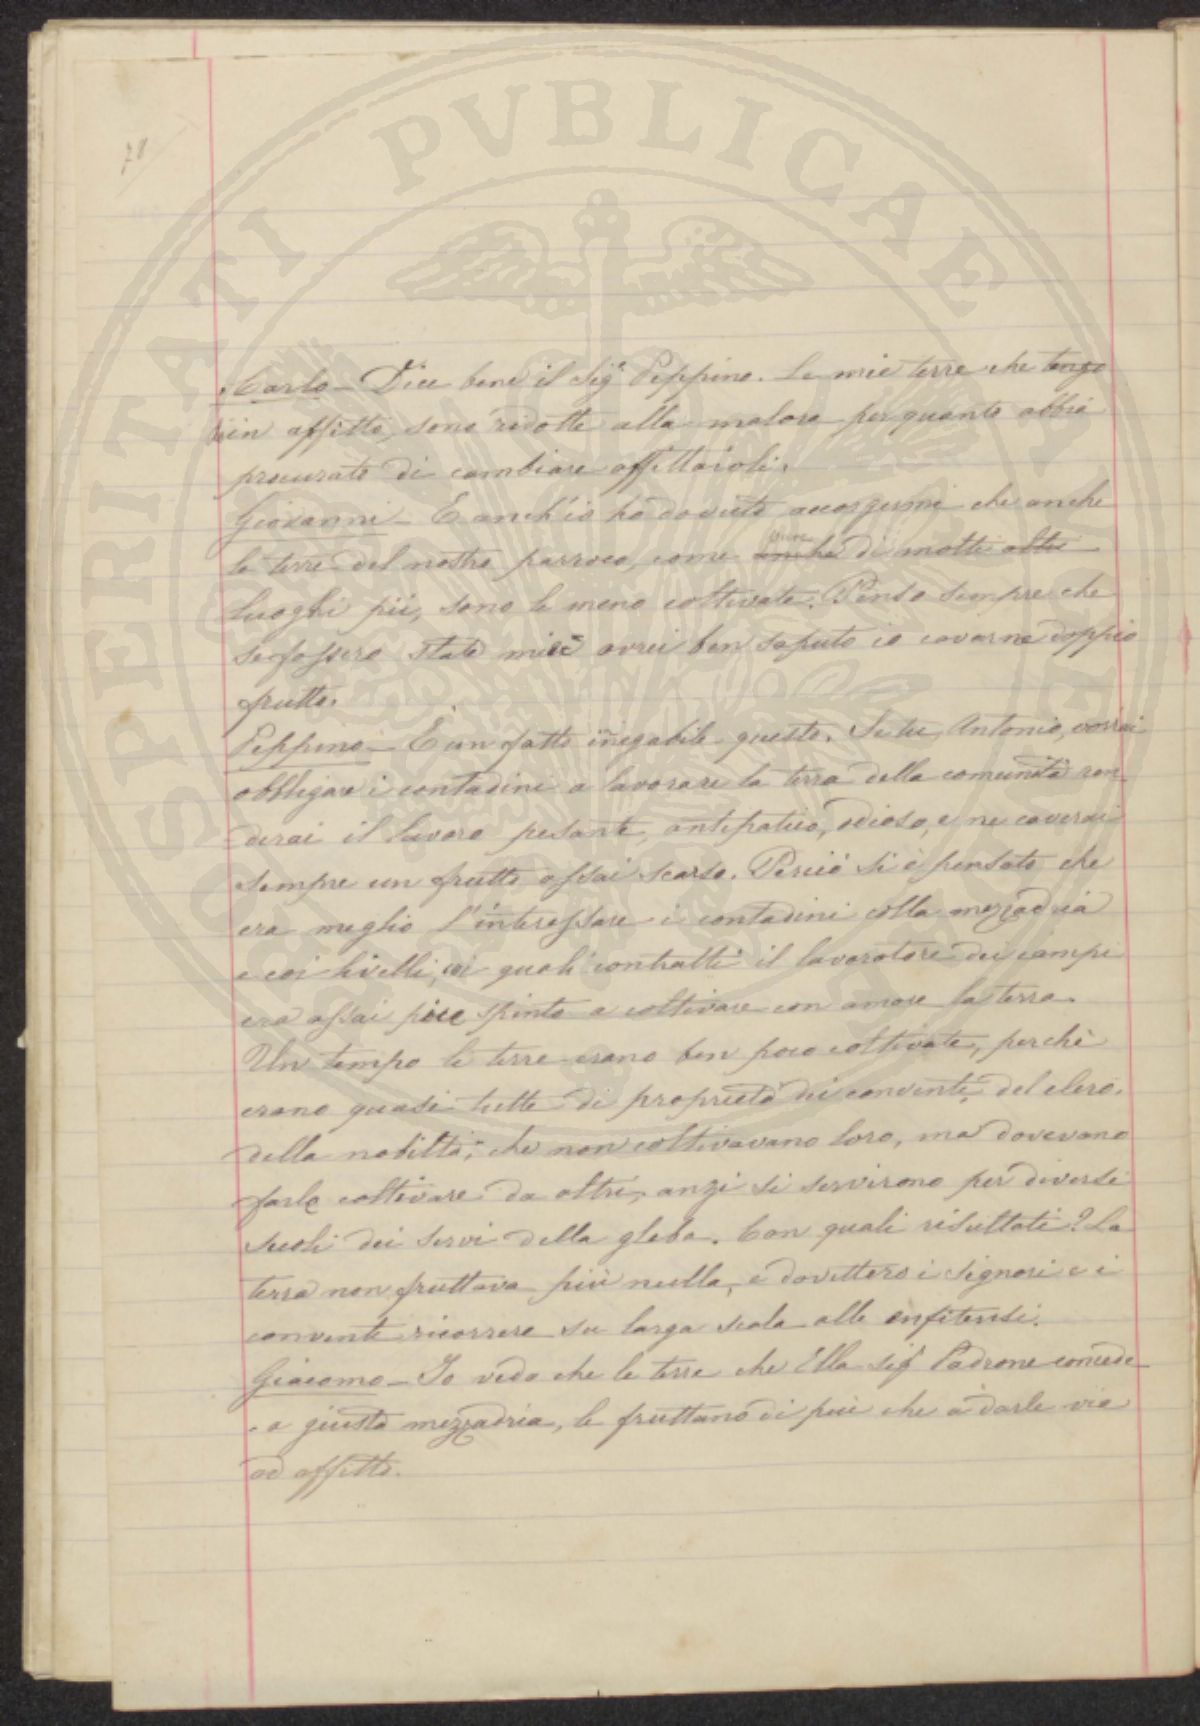 78
PROSPERITATI PVBLICAE
Carlo – Dice bene il Sigr Peppino. Le mie terre che tengo
in affitto, sono ridotte alla malora per quanto abbia
procurato di cambiare affittaioli.
Giovanni – E anch'io ho dovuto accorgermi che anche
le terre del nostro parroco, come anche di molti altri
luoghi pii, sono le meno coltivate. Penso sempre che
se fossero state mie avrei ben saputo io cavarne doppio
frutto.
Peppino – È un fatto innegabile questo. Se tu, Antonio, vorrai
obbligare i contadini a lavorare la terra della comunità ren-
derai il lavoro pesante, antipatico, odioso, e ne caverai
sempre un frutto assai scarso. Perciò si è pensato che
era meglio l'interessare i contadini colla mezzadria
e coi livelli, coi quali contratti il lavoratore dei campi
era assai più spinto a coltivare con amore la terra.
Un tempo le terre erano ben poco coltivate, perchè
erano quasi tutte di proprietà dei conventi, del clero,
della nobiltà, che non coltivavano loro, ma dovevano
farle coltivare da altri, anzi si servirono per diversi
secoli dei servi della gleba. Con quali risultati? La
terra non fruttava più nulla, e dovettero i signori e i
conventi ricorrere su larga scala alle enfiteusi.
Giacomo – Io vedo che le terre che Ella Sigr Padrone concede
a giusta mezzadria, le fruttano di più che a darle via
ad affitto.